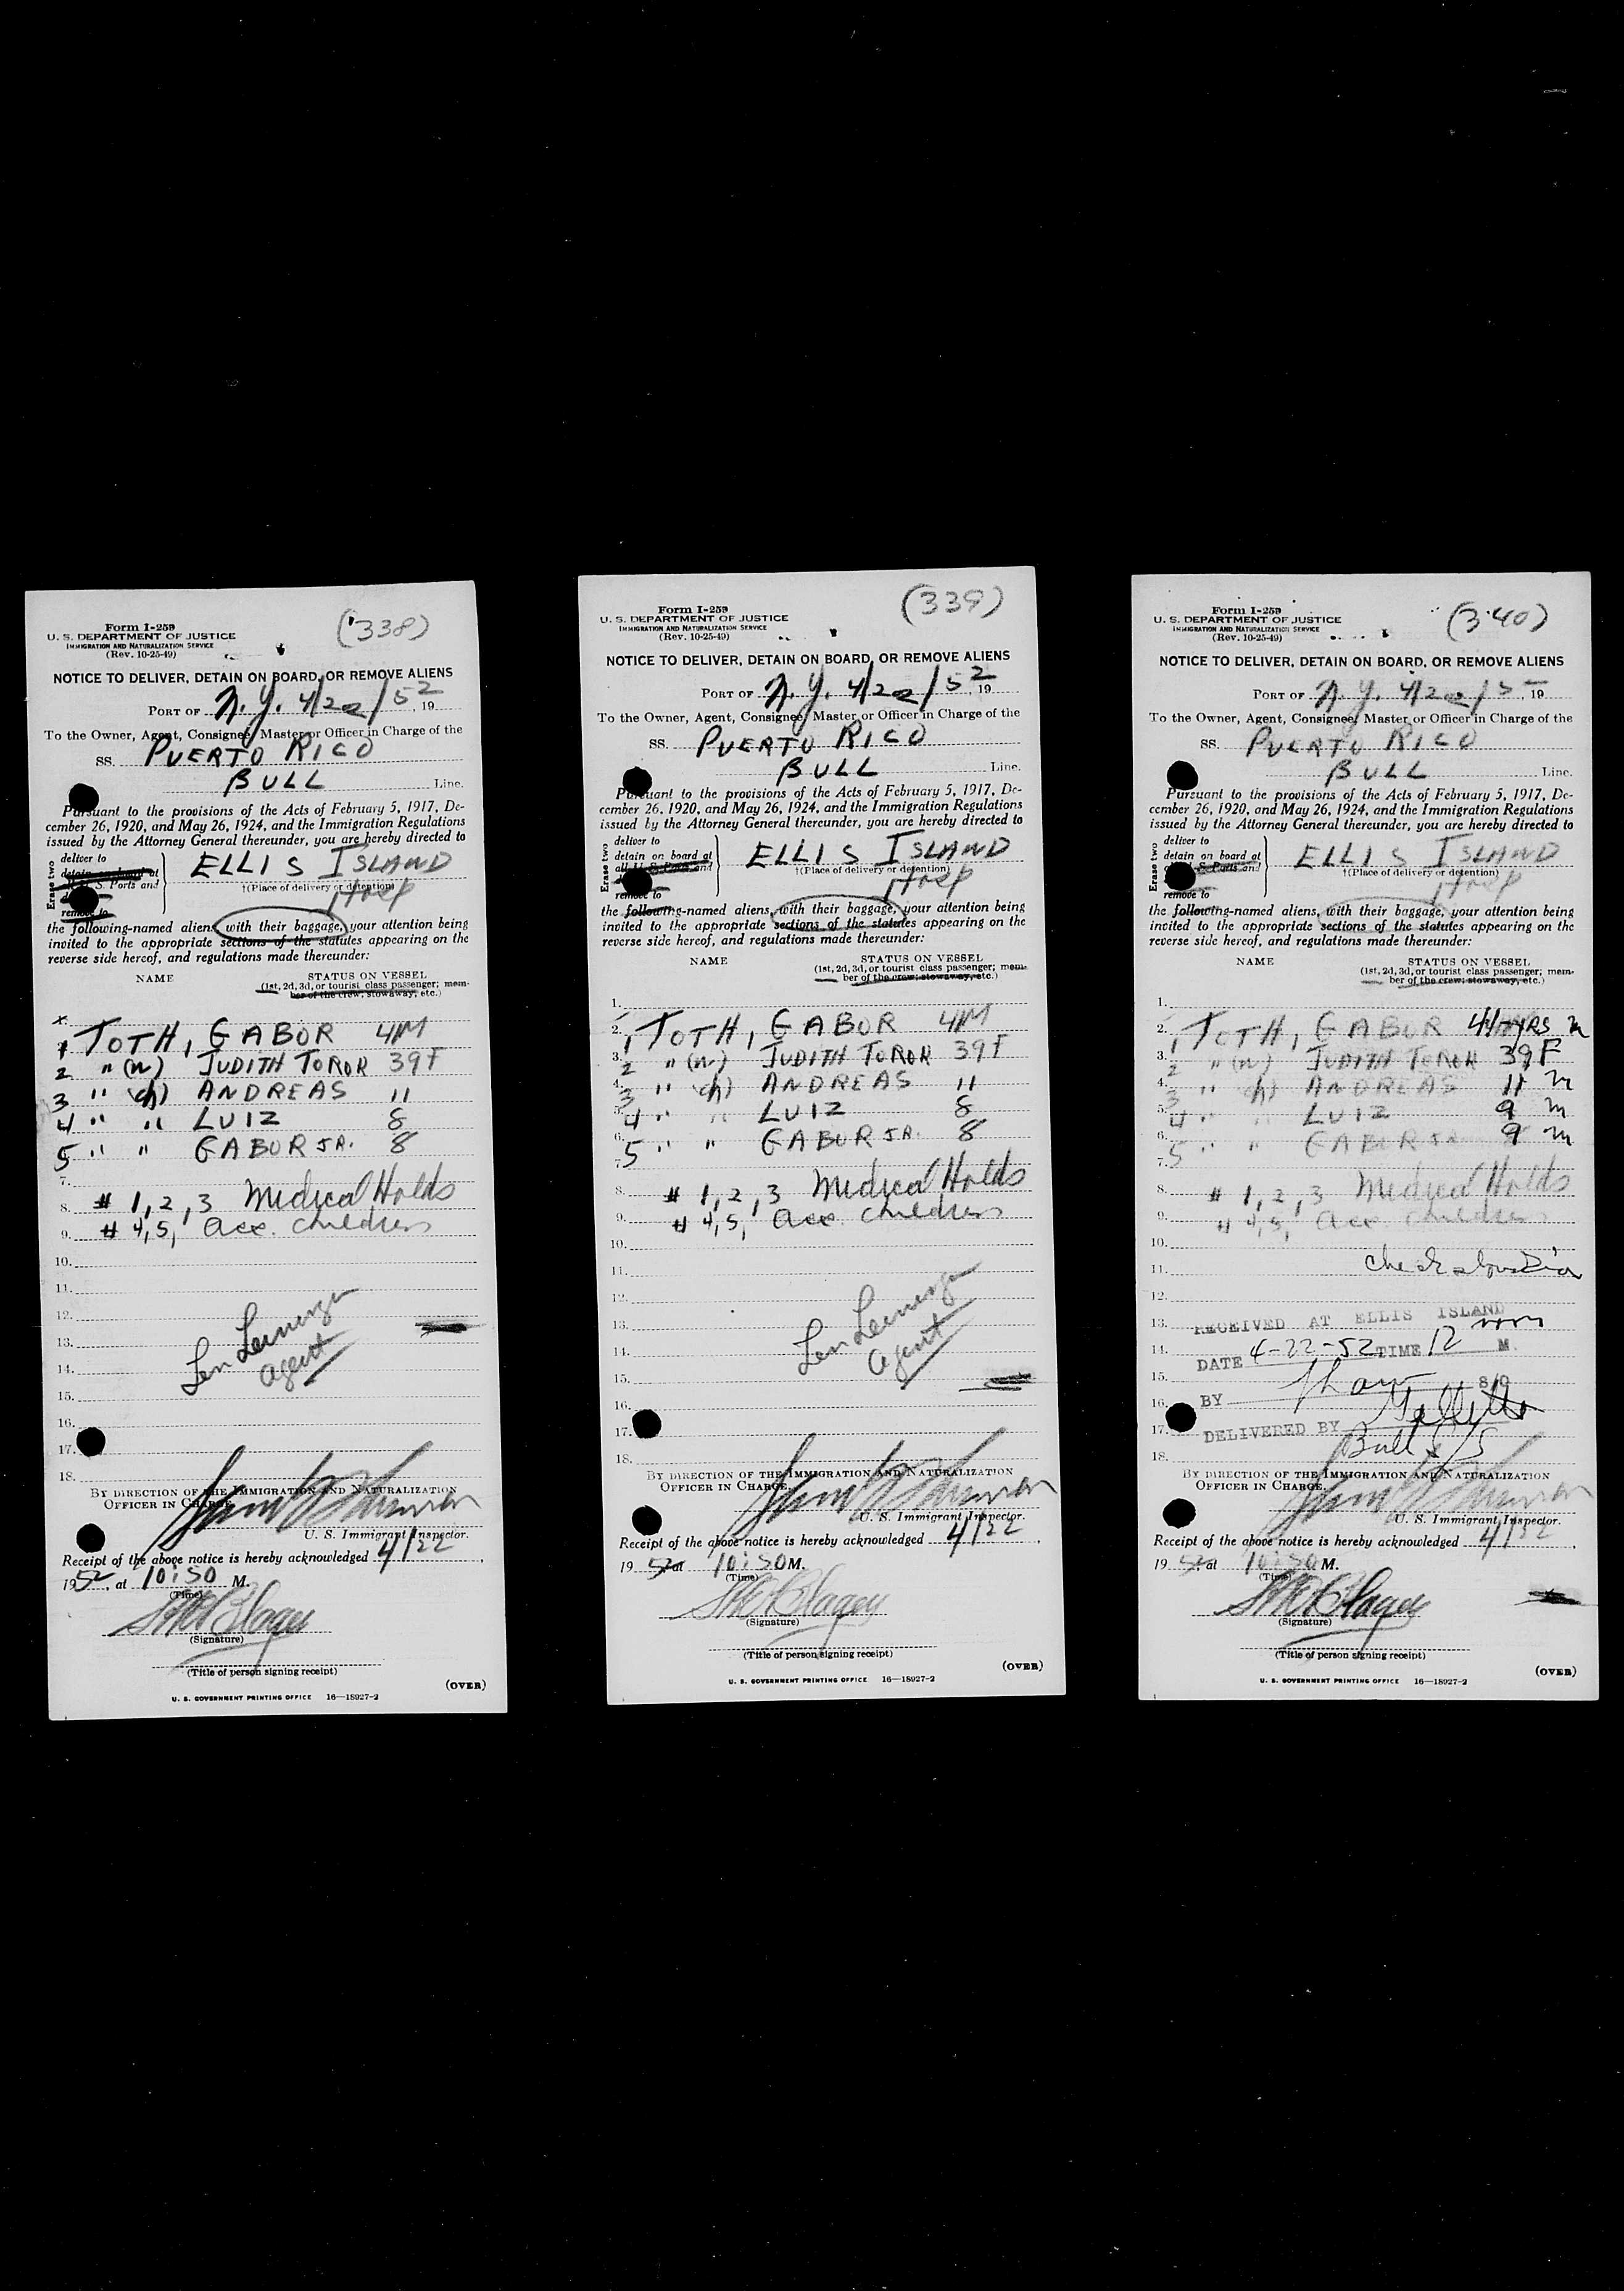 Form I-259
U. S. DEPARTMENT OF JUSTICE
IMMIGRATION AND NATURALIZATION SERVICE
(Rev. 10-25-49)
(338)
NOTICE TO DELIVER, DETAIN ON BOARD, OR REMOVE ALIENS
PORT OF N.Y. 4/22/52, 19
To the Owner, Agent, Consignee, Master or Officer in Charge of the
SS. PUERTO RICO
BULL Line.
Pursuant to the provisions of the Acts of February 5, 1917, De-
cember 26, 1920, and May 26, 1924, and the Immigration Regulations
issued by the Attorney General thereunder, you are hereby directed to
Erase two
deliver to
detain on board at
U. S. Ports and
remove to
ELLIS ISLAND
†(Place of delivery or detention)
the following-named aliens, with their baggage, your attention being
invited to the appropriate sections of the statutes appearing on the
reverse side hereof, and regulations made thereunder:
NAME STATUS ON VESSEL
(1st, 2d, 3d, or tourist class passenger; mem-
ber of the crew; stowaway, etc.)
1 TOTH, GABOR 41M
2 " (w) JUDITH TOROK 39F
3 " ch) ANDREAS 11
4 " " LUIZ 8
5 " " GABOR JR. 8
7.
8. # 1, 2, 3 Medical Holds
9. # 4, 5, acc. children
10.
11.
12.
13.
14.
15.
16.
17.
18.
Agent
BY DIRECTION OF THE IMMIGRATION AND NATURALIZATION
OFFICER IN CHARGE.
U. S. Immigrant Inspector.
Receipt of the above notice is hereby acknowledged 4/22,
1952, at 10:50 M.
(Time)
(Signature)
(Title of person signing receipt)
(OVER)
U. S. GOVERNMENT PRINTING OFFICE 16—18927-2
Form I-259
U. S. DEPARTMENT OF JUSTICE
IMMIGRATION AND NATURALIZATION SERVICE
(Rev. 10-25-49)
(339)
NOTICE TO DELIVER, DETAIN ON BOARD, OR REMOVE ALIENS
PORT OF N.Y. 4/22/52, 19
To the Owner, Agent, Consignee, Master or Officer in Charge of the
SS. PUERTO RICO
BULL Line.
Pursuant to the provisions of the Acts of February 5, 1917, De-
cember 26, 1920, and May 26, 1924, and the Immigration Regulations
issued by the Attorney General thereunder, you are hereby directed to
Erase two
deliver to
detain on board at
all U. S. Ports and
remove to
ELLIS ISLAND
†(Place of delivery or detention)
the following-named aliens, with their baggage, your attention being
invited to the appropriate sections of the statutes appearing on the
reverse side hereof, and regulations made thereunder:
NAME STATUS ON VESSEL
(1st, 2d, 3d, or tourist class passenger; mem-
ber of the crew; stowaway, etc.)
1.
2. 1 TOTH, GABOR 41M
3. 2 " (w) JUDITH TOROK 39F
4. 3 " ch) ANDREAS 11
5. 4 " " LUIZ 8
6. 5 " " GABOR JR. 8
7.
8. # 1, 2, 3 Medical Holds
9. # 4, 5, acc. children
10.
11.
12.
13.
14.
15.
16.
17.
18.
Agent
BY DIRECTION OF THE IMMIGRATION AND NATURALIZATION
OFFICER IN CHARGE.
U. S. Immigrant Inspector.
Receipt of the above notice is hereby acknowledged 4/22,
1952, at 10:50 M.
(Time)
(Signature)
(Title of person signing receipt)
(OVER)
U. S. GOVERNMENT PRINTING OFFICE 16—18927-2
Form I-259
U. S. DEPARTMENT OF JUSTICE
IMMIGRATION AND NATURALIZATION SERVICE
(Rev. 10-25-49)
(340)
NOTICE TO DELIVER, DETAIN ON BOARD, OR REMOVE ALIENS
PORT OF N.Y. 4/22/5, 19
To the Owner, Agent, Consignee, Master or Officer in Charge of the
SS. PUERTO RICO
BULL Line.
Pursuant to the provisions of the Acts of February 5, 1917, De-
cember 26, 1920, and May 26, 1924, and the Immigration Regulations
issued by the Attorney General thereunder, you are hereby directed to
Erase two
deliver to
detain on board at
U. S. Ports and
remove to
ELLIS ISLAND
†(Place of delivery or detention)
the following-named aliens, with their baggage, your attention being
invited to the appropriate sections of the statutes appearing on the
reverse side hereof, and regulations made thereunder:
NAME STATUS ON VESSEL
(1st, 2d, 3d, or tourist class passenger; mem-
ber of the crew; stowaway, etc.)
1.
2. 1 TOTH, GABOR 41 YRS M
3. 2 " (w) JUDITH TOROK 39F
4. 3 " ch) ANDREAS 11 M
5. 4 " " LUIZ 9 M
6. 5 " " GABOR JR 9 M
7.
8. # 1, 2, 3 Medical Holds
9. # 4, 5, acc. children
10.
11.
12.
13. RECEIVED AT ELLIS ISLAND
14. DATE 4-22-52 TIME 12 noon M.
15.
16. BY Shaw S/O
17. DELIVERED BY
18. Bull S/S
BY DIRECTION OF THE IMMIGRATION AND NATURALIZATION
OFFICER IN CHARGE.
U. S. Immigrant Inspector.
Receipt of the above notice is hereby acknowledged 4/22,
1952, at 10:50 M.
(Time)
(Signature)
(Title of person signing receipt)
(OVER)
U. S. GOVERNMENT PRINTING OFFICE 16—18927-2